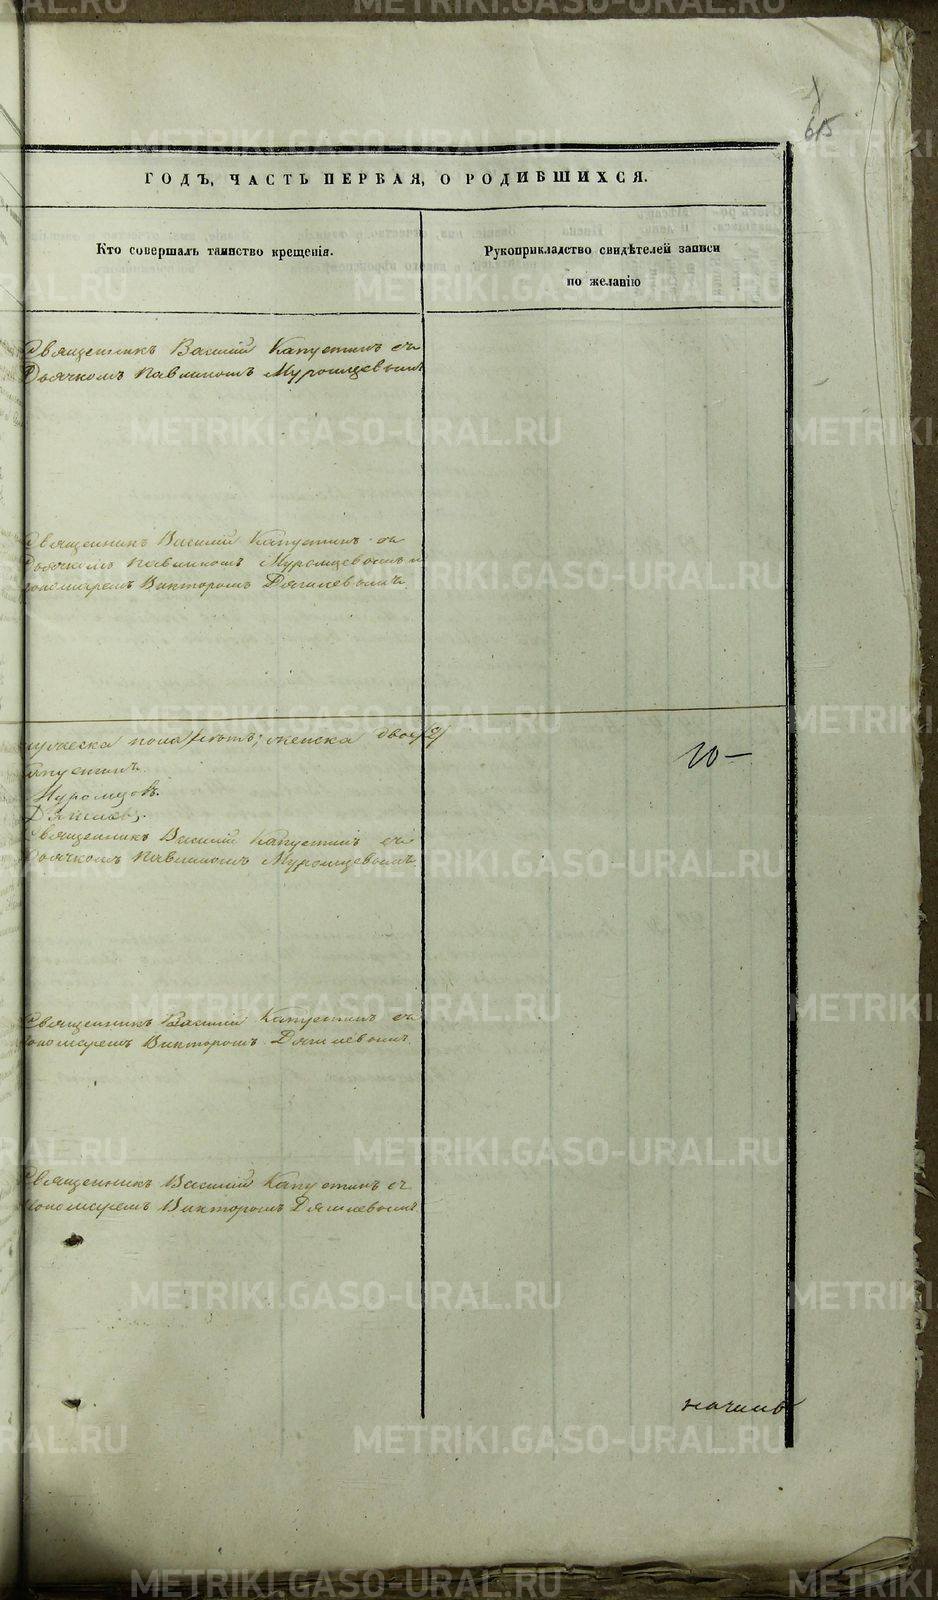 615
ГОДЪ, ЧАСТЬ ПЕРВАЯ, О РОДИВШИХСЯ.
Кто совершалъ таинство крещенія.
Рукоприкладство свидѣтелей записи
по желанію
Священникъ Василій Капустинъ съ
Дьячкомъ Павлиномъ Муромцевымъ
Священникъ Василій Капустинъ съ
Дьячкомъ Павлиномъ Муромцевымъ и
пономаремъ Викторомъ Дягилевымъ
мужеска пола ; женска двое /2/
Капустинъ
10-
Муромцовъ.
Дягилевъ.
Священникъ Василій Капустинъ съ
Дьячкомъ Павлиномъ Муромцевымъ
Священникъ Василій Капустинъ съ
пономаремъ Викторомъ Дягилевымъ
Священникъ Василій Капустинъ съ
пономаремъ Викторомъ Дягилевымъ
METRIKI.GASO-URAL.RU